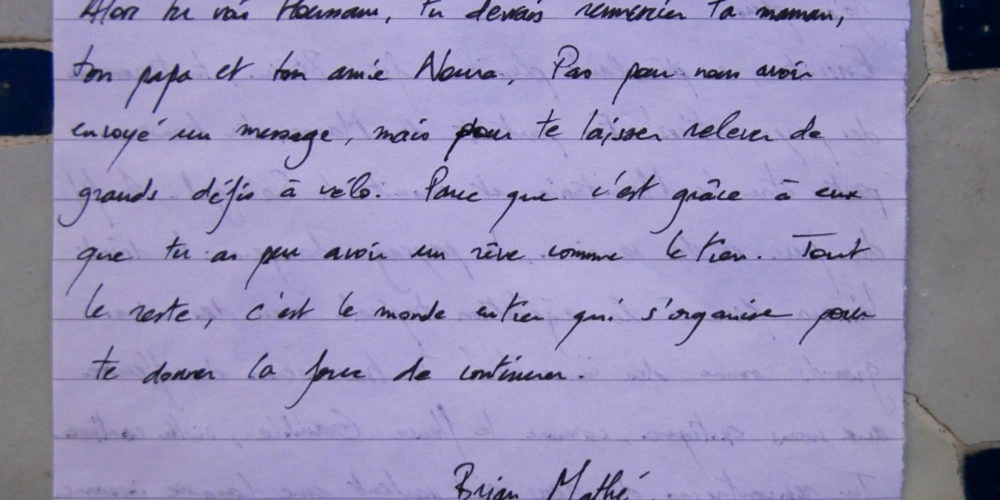 Alors tu vois Houssam, tu devais remercier ta maman,
ton papa et ton amie Noura, Pas pour nous avoir
envoyé un message, mais pour te laisser relever de
grands défis à vélo. Parce que c'est grâce à eux
que tu as pu avoir un rêve comme le tien. Tout
le reste, c'est le monde entier qui s'organise pour
te donner la force de continuer.
Brian Mathé